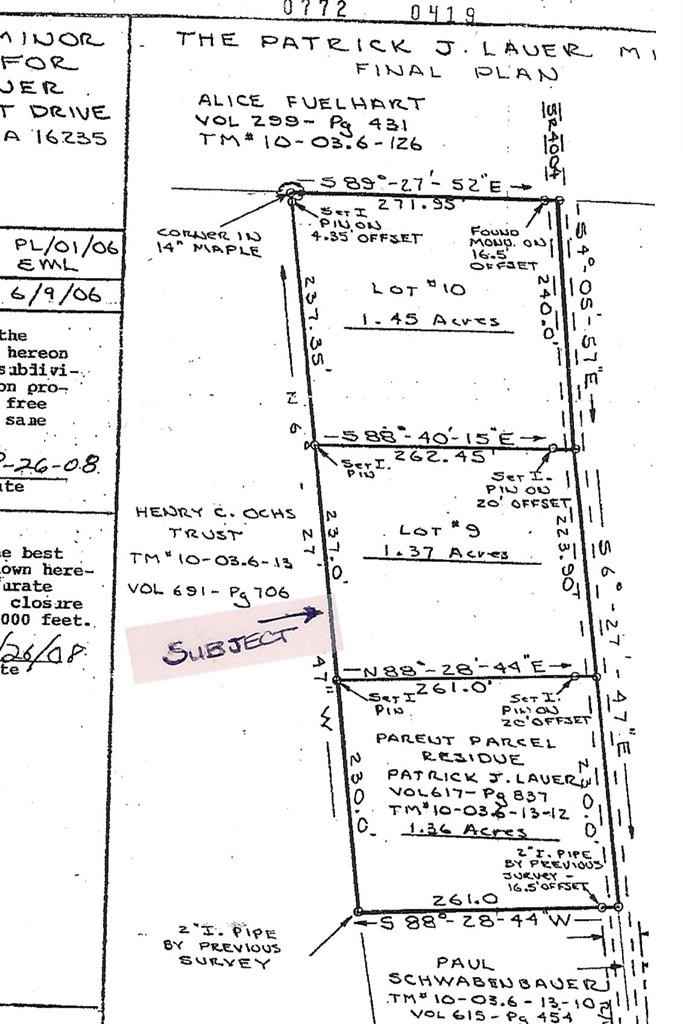 0772 0419
MINOR
FOR
UER
T DRIVE
A 16235
PL/01/06
EML
6/9/06
the
hereon
subdivi-
on pro-
free
same
-26-08
te
e best
own here-
urate
closure
000 feet.
/26/08
te
THE PATRICK J. LAUER MI
FINAL PLAN
ALICE FUELHART
VOL 299 - Pg 431
TM# 10-03.6-126
SR4004
S 89°-27'-52"E
271.95'
CORNER IN
14" MAPLE
SET I.
PIN ON
4.35' OFFSET
FOUND
MONO. ON
16.5'
OFFSET
S 4°-05'-57"E
237.35'
LOT #10
1.45 Acres
240.0'
S 88°-40'-15"E
262.45'
SET I.
PIN
SET I.
PIN ON
20' OFFSET
N 6° - 27' 47" W
HENRY C. OCHS
TRUST
TM# 10-03.6-13
VOL 691 - Pg 706
237.0'
LOT #9
1.37 Acres
223.90'
S 6°-27'-47"E
SUBJECT
N 88°-28'-44"E
261.0'
SET I.
PIN
SET I.
PIN ON
20' OFFSET
PARENT PARCEL
RESIDUE
PATRICK J. LAUER
VOL 617 - Pg 837
TM# 10-03.6-13-12
1.36 Acres
230.0'
230.0'
2" I. PIPE
BY PREVIOUS
SURVEY -
16.5' OFFSET
261.0
S 88°-28'-44"W
2" I. PIPE
BY PREVIOUS
SURVEY
PAUL
SCHWABENBAUER
TM# 10-03.6-13-10
VOL 615 - Pg 454